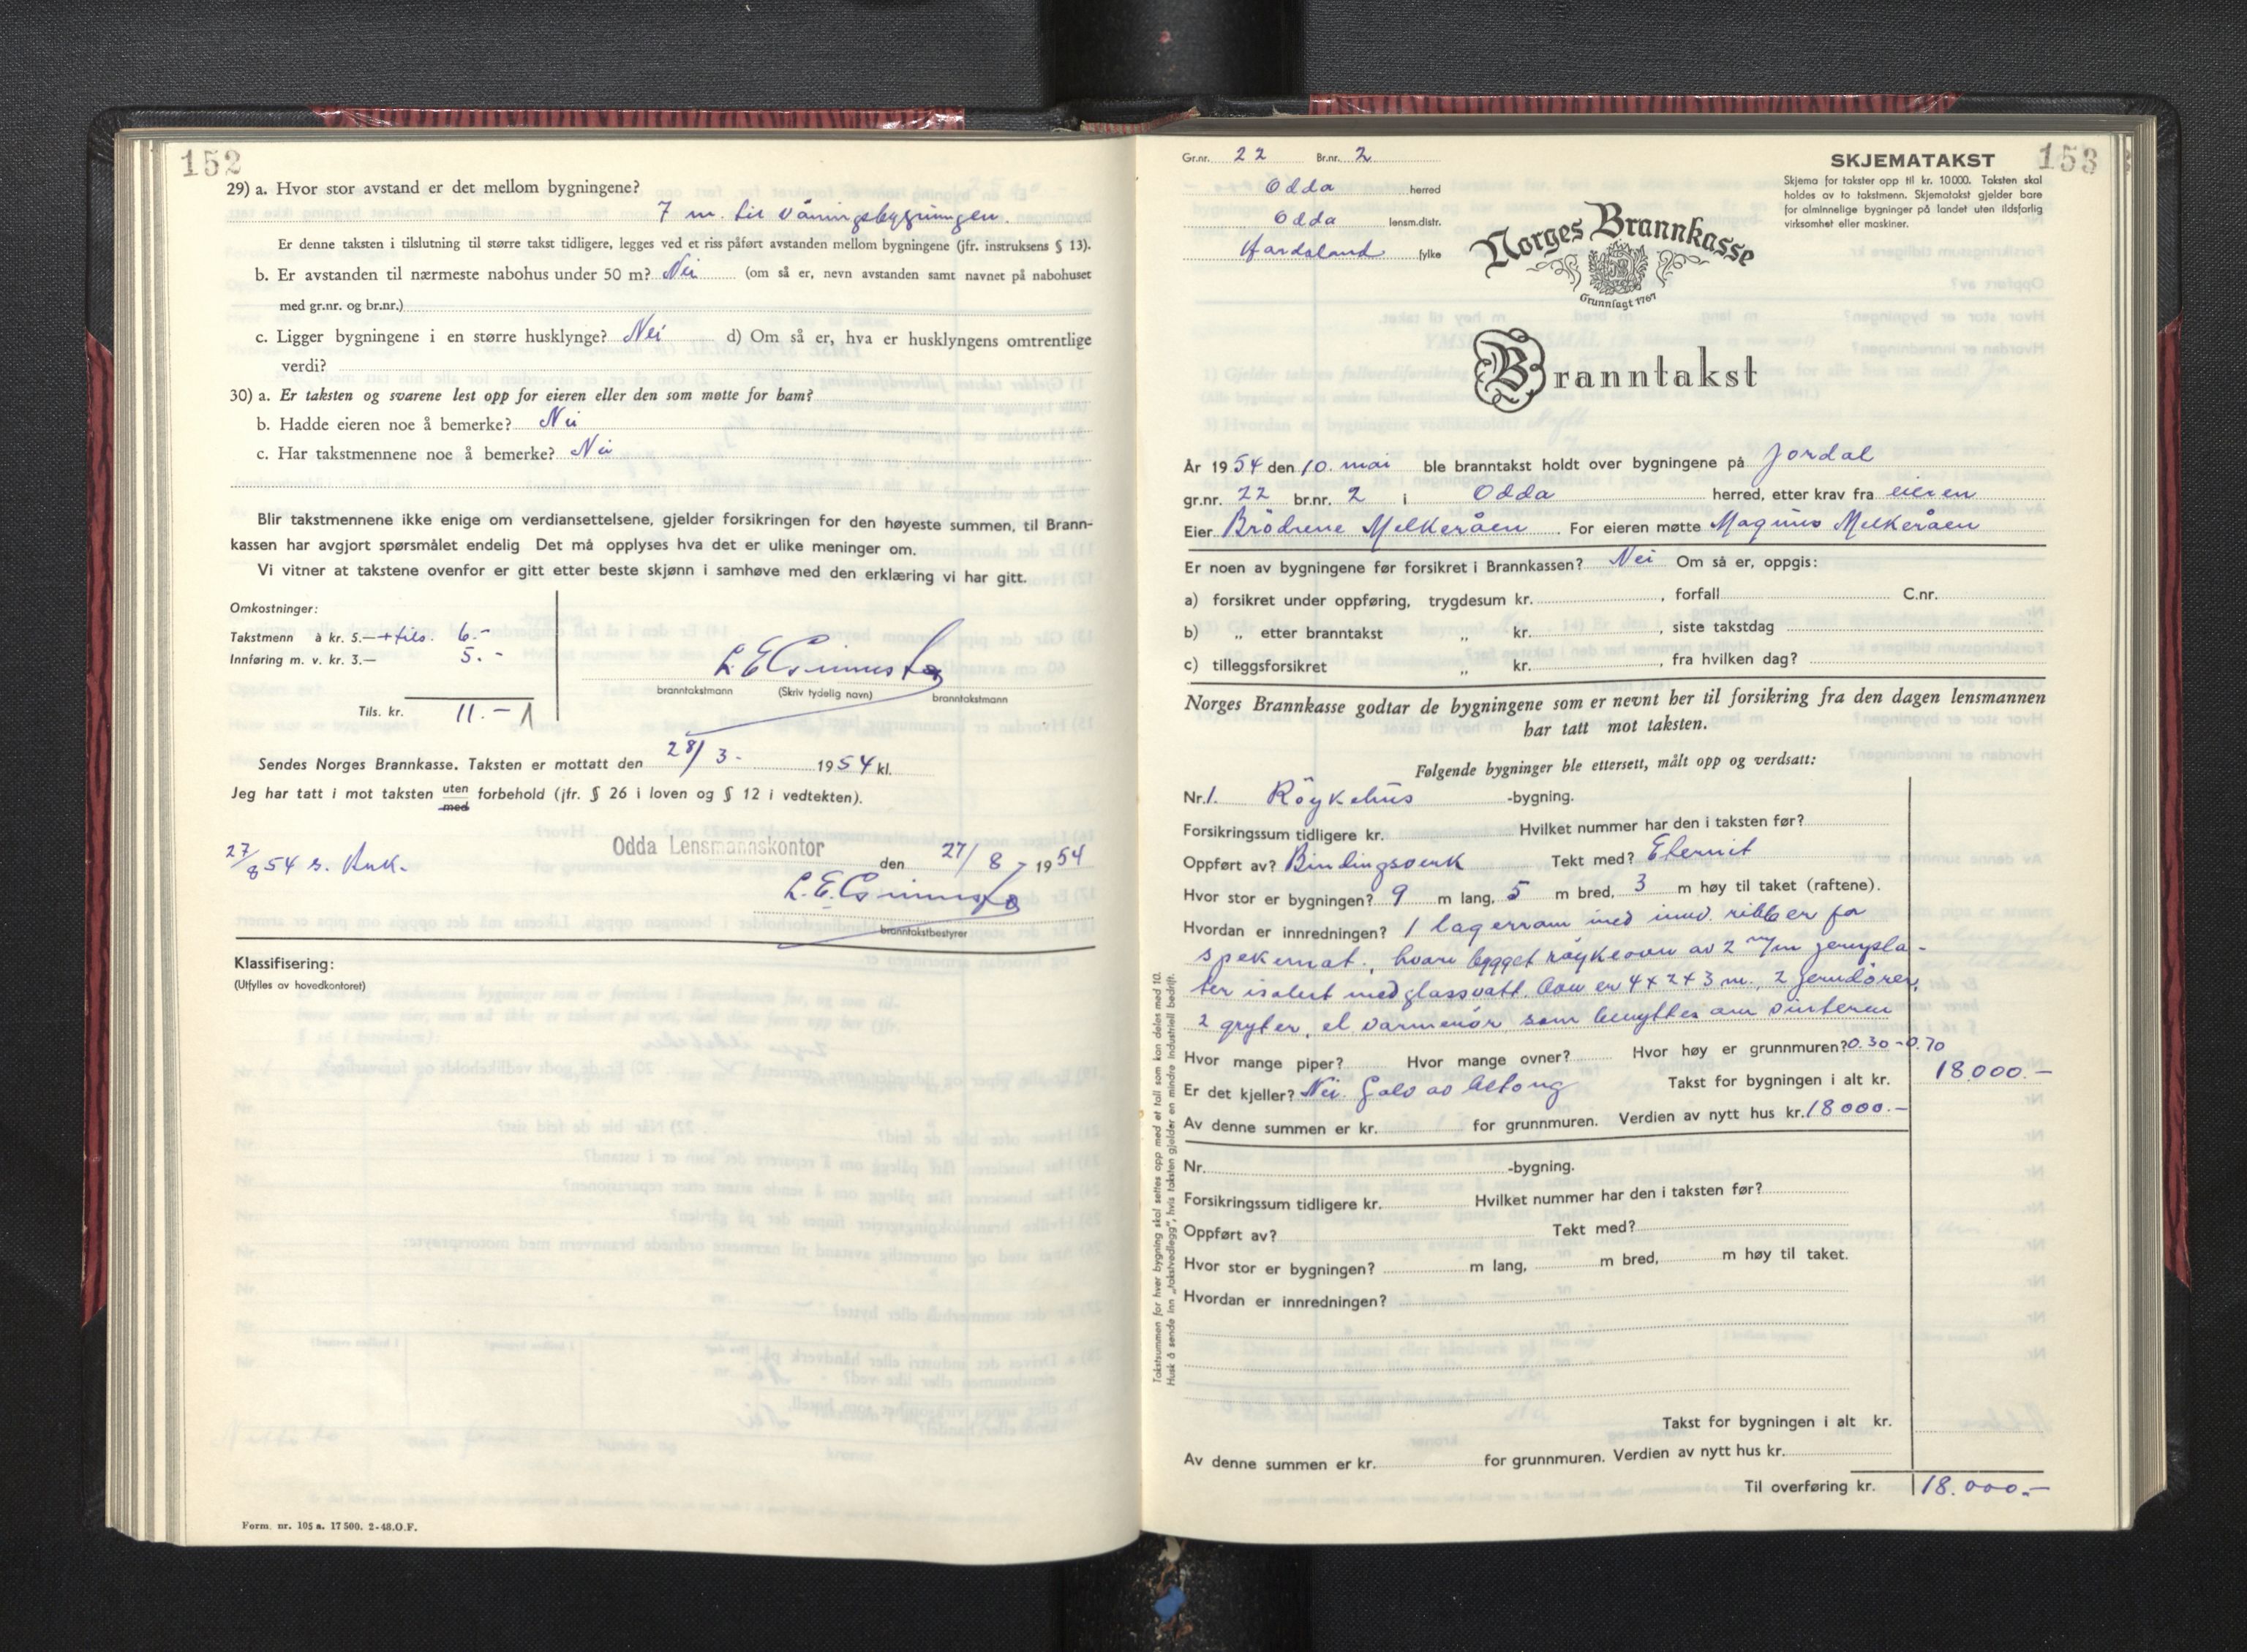 152
29) a. Hvor stor avstand er det mellom bygningene?
7 m. til våningsbygningen.
Er denne taksten i tilslutning til større takst tidligere, legges ved et riss påført avstanden mellom bygningene (jfr. instruksens § 13).
b. Er avstanden til nærmeste nabohus under 50 m? Nei (om så er, nevn avstanden samt navnet på nabohuset
med gr.nr. og br.nr.)
c. Ligger bygningene i en større husklynge? Nei d) Om så er, hva er husklyngens omtrentlige
verdi?
30) a. Er taksten og svarene lest opp for eieren eller den som møtte for ham?
b. Hadde eieren noe å bemerke? Nei
c. Har takstmennene noe å bemerke? Nei
Blir takstmennene ikke enige om verdiansettelsene, gjelder forsikringen for den høyeste summen, til Brann-
kassen har avgjort spørsmålet endelig Det må opplyses hva det er ulike meninger om.
Vi vitner at takstene ovenfor er gitt etter beste skjønn i samhøve med den erklæring vi har gitt.
Omkostninger:
Takstmenn à kr. 5.— + tils. 6.-
Innføring m. v. kr. 3.— 5.-
Tils. kr. 11.-
branntakstmann (Skriv tydelig navn) branntakstmann
Sendes Norges Brannkasse. Taksten er mottatt den 28/3- 1954 kl.
Jeg har tatt i mot taksten uten forbehold (jfr. § 26 i loven og § 12 i vedtekten).
med
27/8 54 s.
Odda Lensmannskontor den 27/8 1954
branntakstbestyrer
Klassifisering:
(Utfylles av hovedkontoret)
Form. nr. 105 a. 17 500. 2-48.O.F.
153
Gr.nr. 22 Br.nr. 2
SKJEMATAKST
Skjema for takster opp til kr. 10000. Taksten skal
holdes av to takstmenn. Skjematakst gjelder bare
for alminnelige bygninger på landet uten ildsfarlig
virksomhet eller maskiner.
Odda herred
Odda lensm.distr.
Hordaland fylke
Norges Brannkasse
Grunnlagt 1767
Branntakst
År 1954 den 10. mai ble branntakst holdt over bygningene på Jordal
gr.nr. 22 br.nr. 2 i Odda herred, etter krav fra eieren
Eier Brödrene Melkeråen. For eieren møtte Magnus Melkeråen
Er noen av bygningene før forsikret i Brannkassen? Nei Om så er, oppgis:
a) forsikret under oppføring, trygdesum kr. , forfall C.nr.
b) „ etter branntakst „ kr. , siste takstdag
c) tilleggsforsikret „ kr. , fra hvilken dag?
Norges Brannkasse godtar de bygningene som er nevnt her til forsikring fra den dagen lensmannen
har tatt mot taksten.
Følgende bygninger ble ettersett, målt opp og verdsatt:
Nr. 1. Röykehus -bygning.
Forsikringssum tidligere kr. Hvilket nummer har den i taksten før?
Oppført av? Bindingsverk Tekt med? Eternit
Hvor stor er bygningen? 9 m lang, 5 m bred, 3 m høy til taket (raftene).
Hvordan er innredningen? 1 lagerrom med innv. ribber for
spekemat., hvori bygget røykeovn av 2 m/m jernpla-
ter isolert med glassvatt. Ovn er 4 x 2 x 3 m., 2 jerndører,
2 gryter, el varmerör som benyttes om vinteren
Hvor mange piper? Hvor mange ovner? Hvor høy er grunnmuren? 0.30 - 0.70
Er det kjeller? Nei. Golv av betong Takst for bygningen i alt kr. 18000.-
Av denne summen er kr. for grunnmuren. Verdien av nytt hus kr. 18000.-
Nr. -bygning.
Forsikringssum tidligere kr. Hvilket nummer har den i taksten før?
Oppført av? Tekt med?
Hvor stor er bygningen? m lang, m bred, m høy til taket.
Hvordan er innredningen?
Takst for bygningen i alt kr.
Av denne summen er kr. for grunnmuren. Verdien av nytt hus kr.
Til overføring kr. 18.000.-
Takstsummen for hver bygning skal settes opp med et tall som kan deles med 10.
Husk å sende inn „takstvedlegg", hvis taksten gjelder en mindre industriell bedrift.